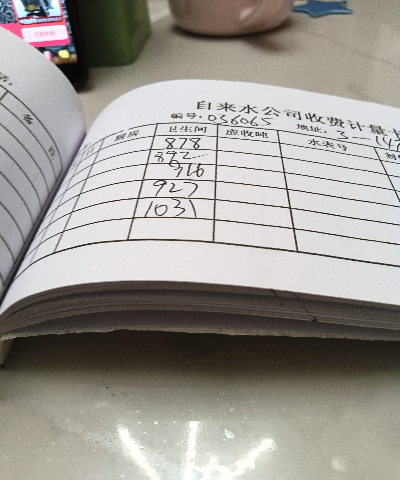 自来水公司收费计量卡
编号: 036065 地址: 3
厨房 卫生间 应收吨 水表号
878
892
916
927
1031